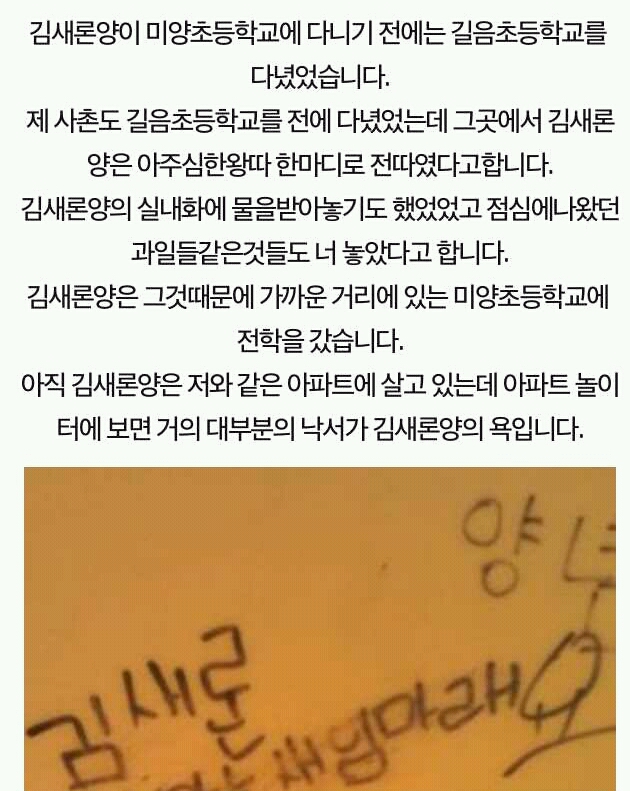 김새론양이 미양초등학교에 다니기 전에는 길음초등학교를
다녔었습니다.
제 사촌도 길음초등학교를 전에 다녔었는데 그곳에서 김새론
양은 아주심한왕따 한마디로 전따였다고합니다.
김새론양의 실내화에 물을받아놓기도 했었었고 점심에나왔던
과일들같은것들도 너 놓았다고 합니다.
김새론양은 그것때문에 가까운 거리에 있는 미양초등학교에
전학을 갔습니다.
아직 김새론양은 저와 같은 아파트에 살고 있는데 아파트 놀이
터에 보면 거의 대부분의 낙서가 김새론양의 욕입니다.
양
김새론